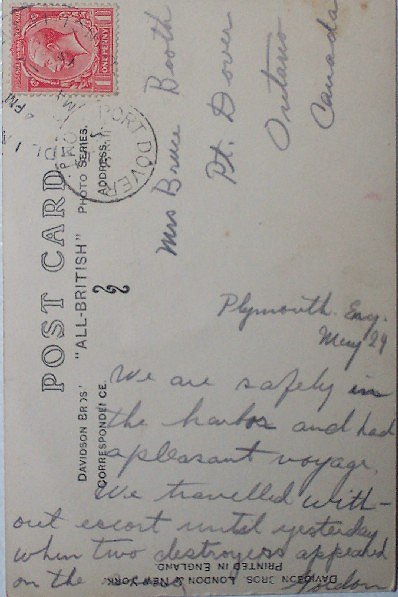 POST CARD
"ALL-BRITISH"
DAVIDSON BROS'
PHOTO SERIES.
CORRESPONDENCE.
ADDRESS.
ONE PENNY
PORT DOVER
Mrs Bruce Booth
Pt. Dover
Ontario
Canada
Plymouth. Eng.
May 29
We are safely in
the harbor and had
a pleasant voyage.
We travelled with-
out escort until yesterday
when two destroyers appeared
on the
Gordon
DAVIDSON BROS. LONDON & NEW YORK.
PRINTED IN ENGLAND.